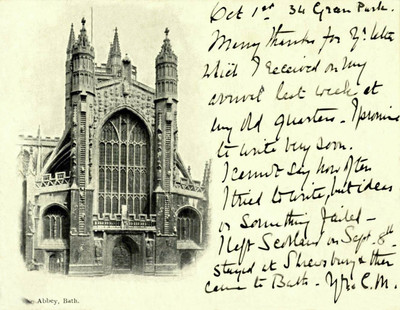 Oct 1st 34 Gran Park.
Many thanks for yr. letter
which I received on my
arrival last week at
my old quarters. I promise
to write very soon.
I cannot say how often
I tried to write, but ideas
or something failed -
I left Scotland on Sept. 8th
stayed at Shrewsbury & then
came to Bath - Yrs C.M.
Abbey, Bath.